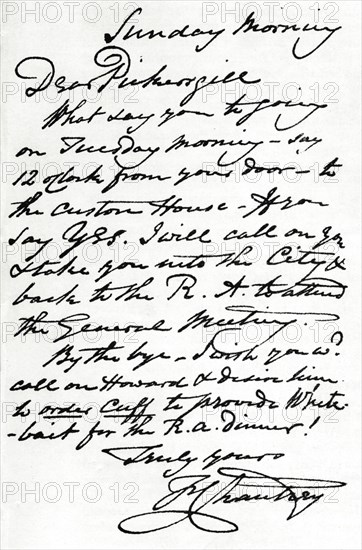 Sunday Morning
Dear Pickersgill
What say you to going
on Tuesday Morning – say
12 oClock from your door – to
the Custom House – If you
say YES. I will call on you
& take you into the City &
back to the R. A. to attend
the General Meeting.
By the bye – I wish you wd.
call on Howard & desire him
to order Cuff to provide White
-bait for the R.A. dinner!
Truly yours
F Chantrey
PHOTO12